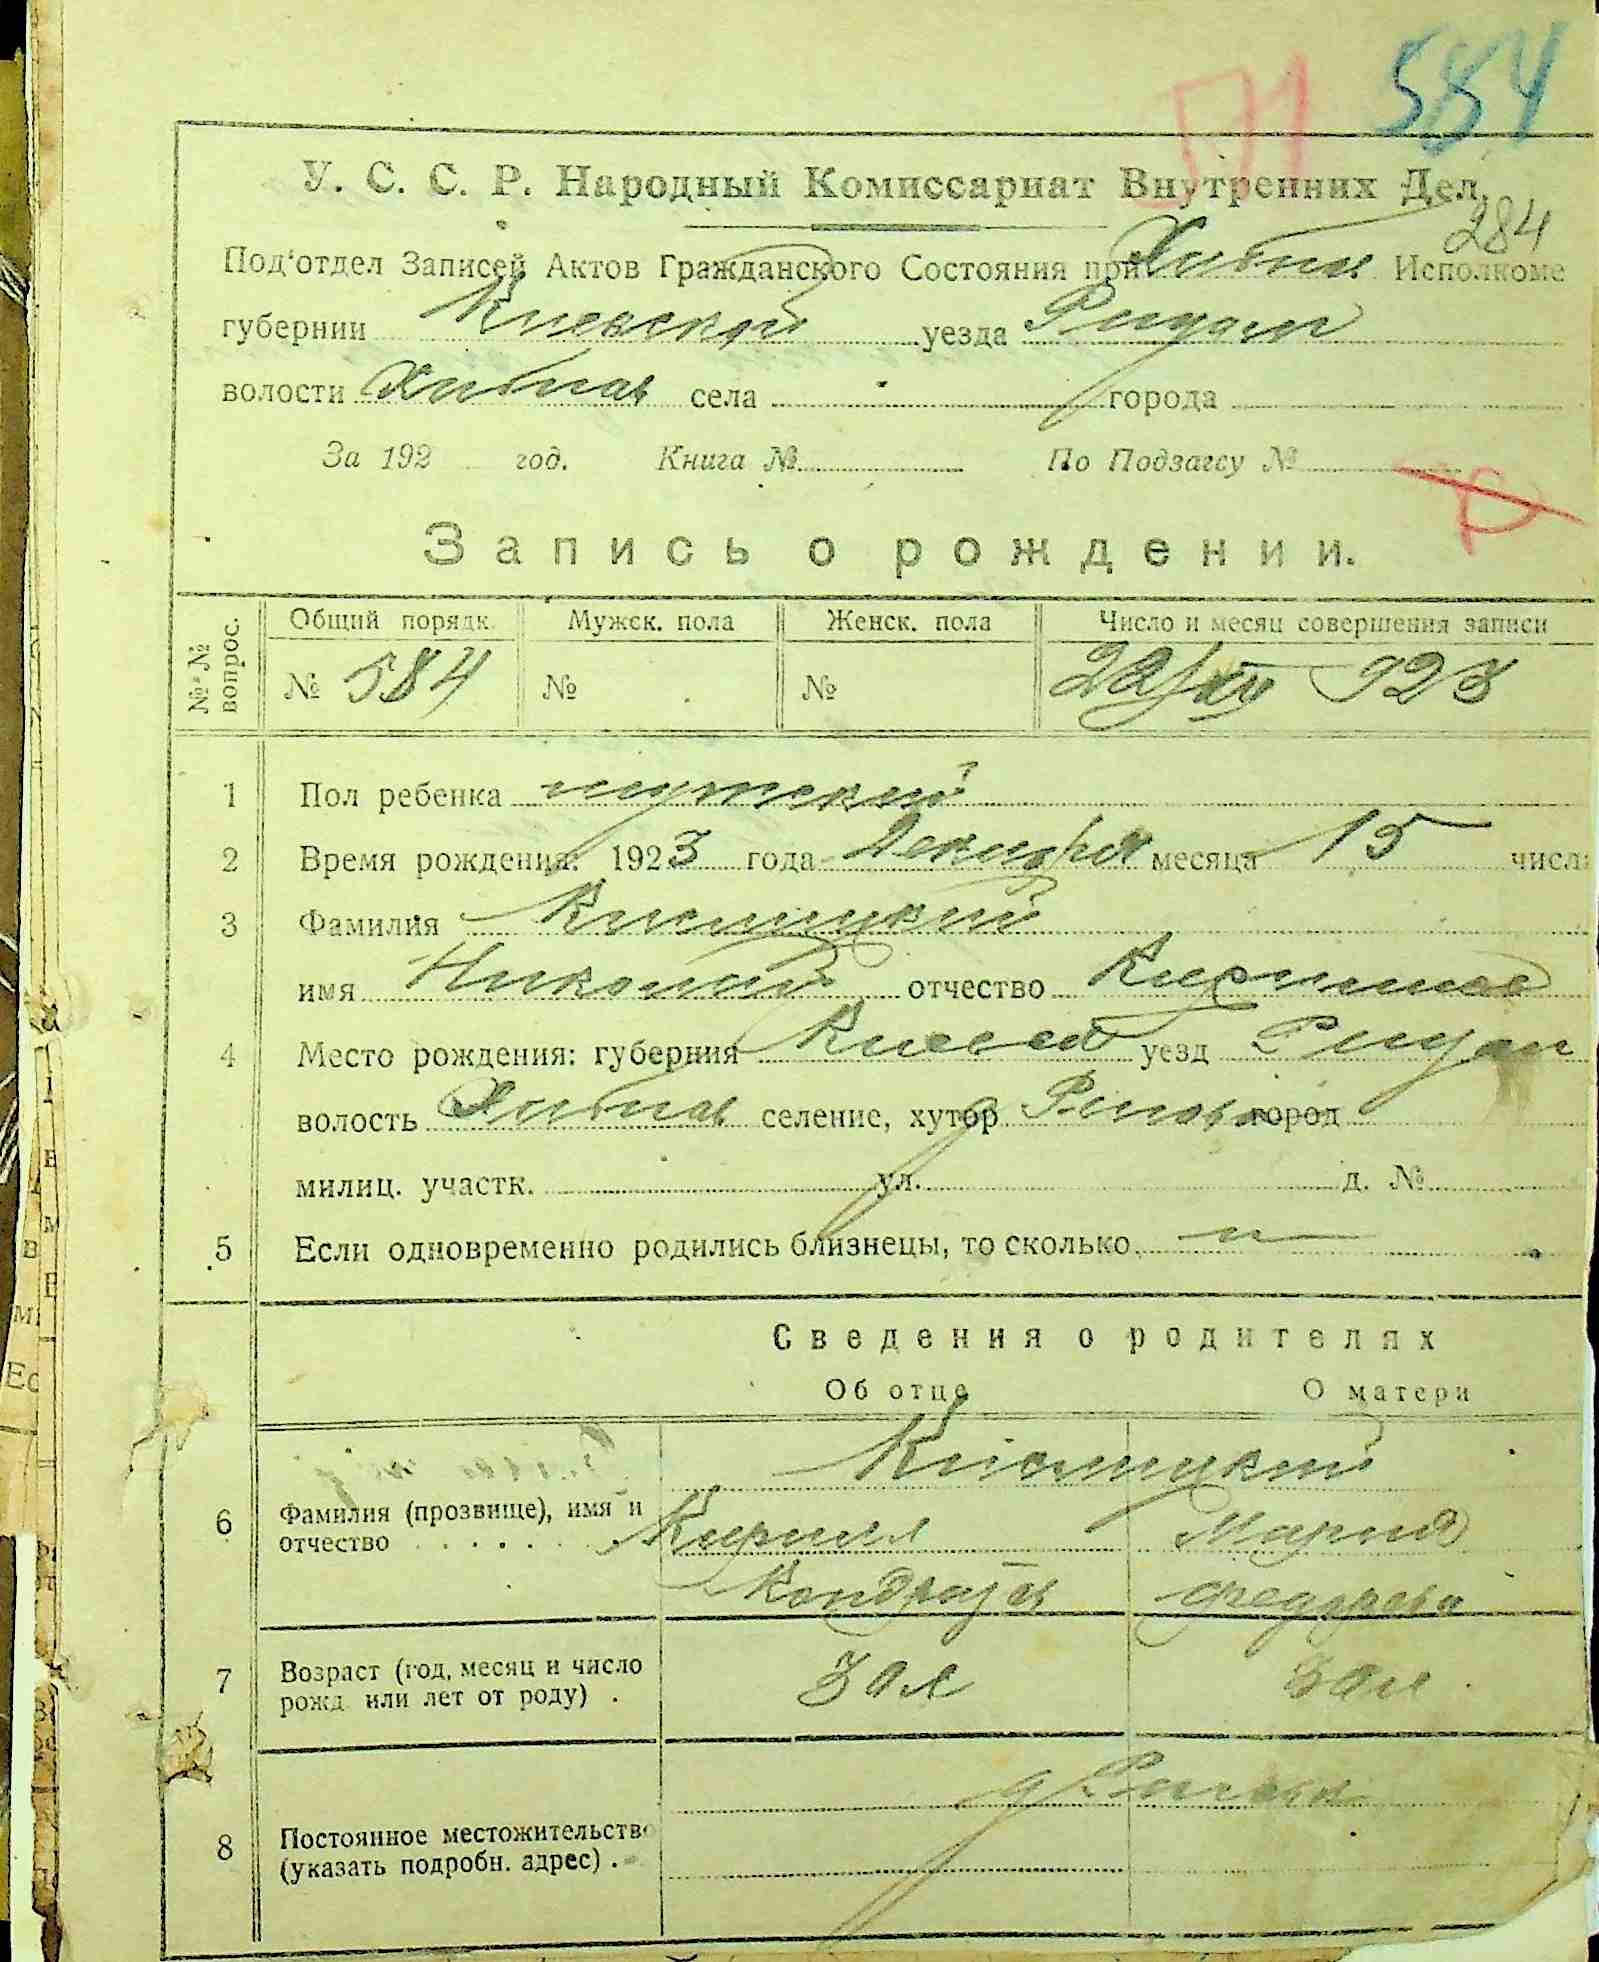 584
П1
У. С. С. Р. Народный Комиссариат Внутренних Дел.
284
Под'отдел Записей Актов Гражданского Состояния при Хабном Исполкоме
губернии Киевской уезда
волости села города
За 192 год. Книга № По Подзагсу №
Запись о рождении.
№№ вопрос. Общий порядк. Мужск. пола Женск. пола Число и месяц совершения записи
№ 584 № № 22/XII 923
1 Пол ребенка мужской
2 Время рождения: 1923 года Декабря месяца 15 числ
3 Фамилия
имя Николай отчество
4 Место рождения: губерния Киевск уезд
волость селение, хутор город
милиц. участк. ул. д. №
5 Если одновременно родились близнецы, то сколько
Сведения о родителях
Об отце О матери
6 Фамилия (прозвище), имя и
отчество Кирилл Мария
Кондратов Федорова
7 Возраст (год, месяц и число
рожд или лет от роду) . 30 л 30 л
8 Постоянное местожительство
(указать подробн. адрес) .